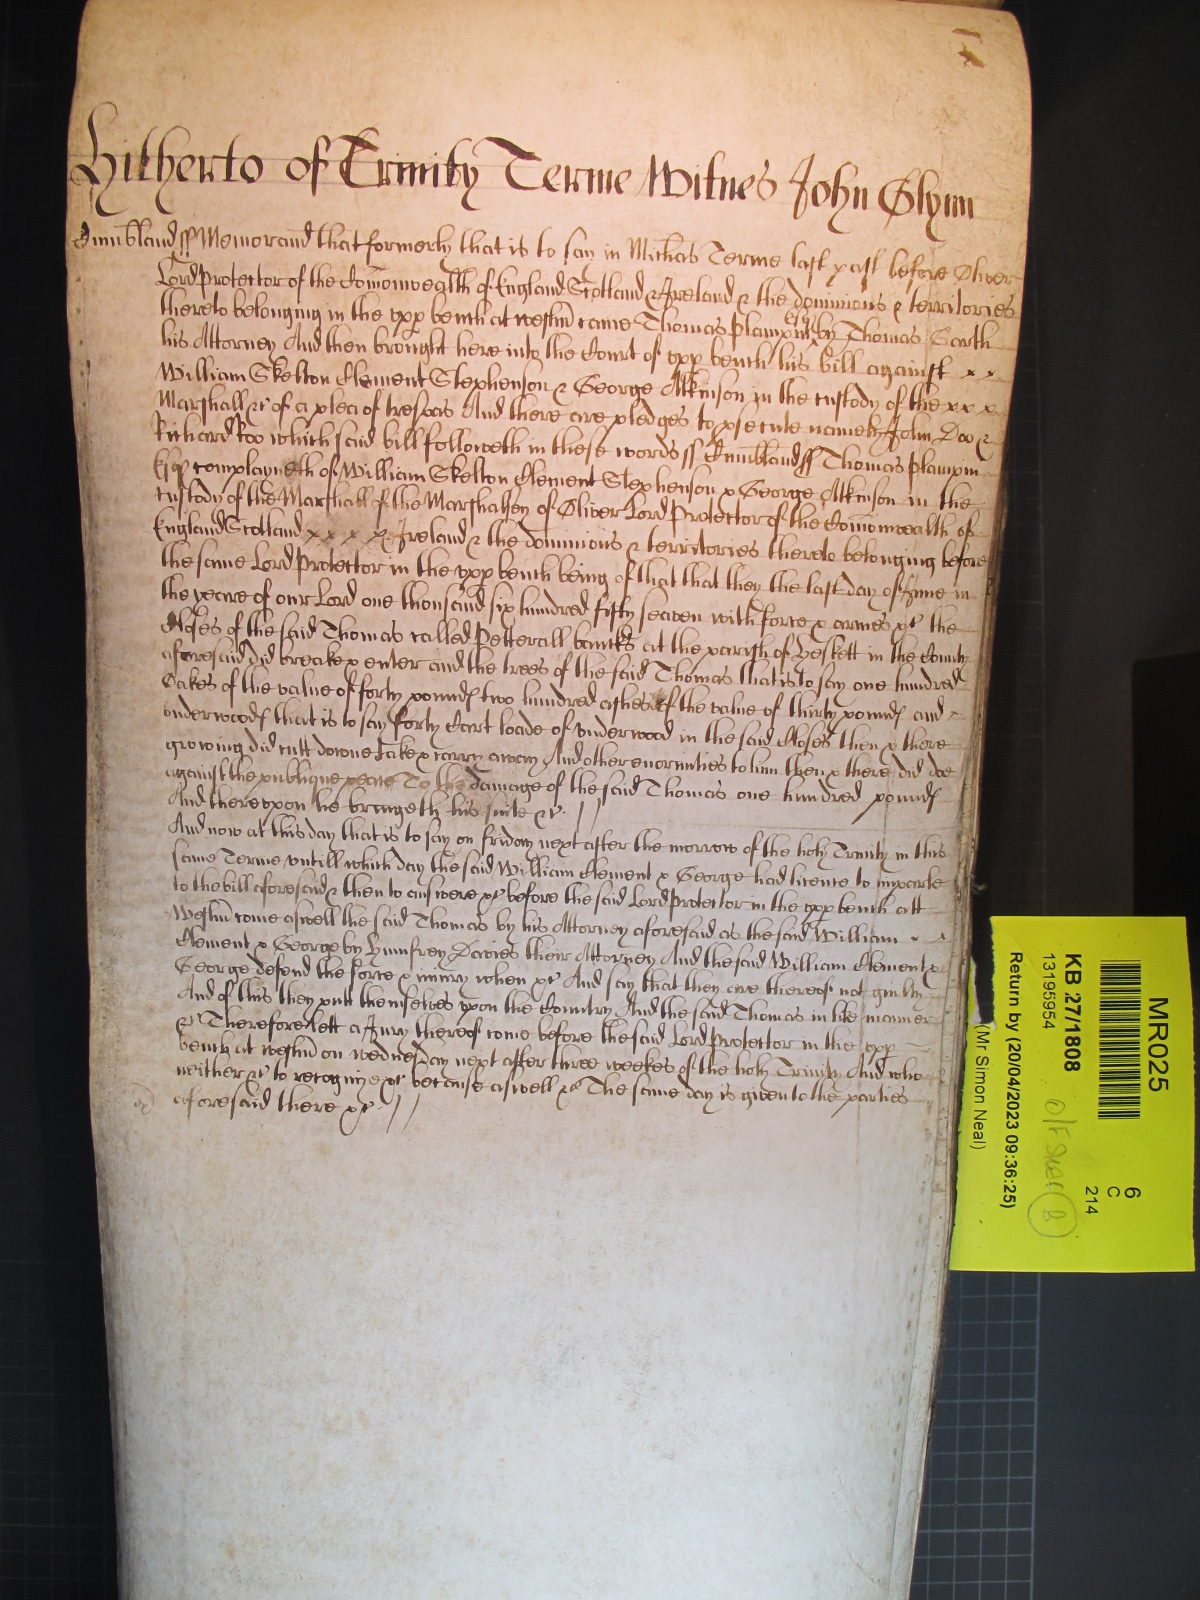 Hitherto of Trinity Terme Witnes John Glynn
Cumbland ss Memorand that formerly that is to say in Michas Terme last past before Oliver
Lord Protector of the Comonwealth of England Scotland & Ireland & the dominions & territories
thereto belonging in the upp bench at westm came Thomas Plampin by Thomas Garth
his Attorney And then brought here into the Court of upp bench his bill against x x
William Skelton Clement Stephenson & George Atkinson in the custody of the x x x
Marshall &c of a plea of trespas And there are pledges to psecute namely John Doo &
Richard Roo which said bill followeth in these words ss Cumbland ss Thomas Plampin
Esqr complayneth of William Skelton Clement Stephenson & George Atkinson in the
custody of the Marshall of the Marshalsey of Oliver Lord Protector of the Comonwealth of
England Scotland x x x x & Ireland & the dominions & territories thereto belonging before
the same Lord Protector in the upp bench being of that that they the last day of June in
the yeare of our Lord one thousand six hundred fifty seaven with force & armes &c the
Closes of the said Thomas called Petterall bancks at the parish of Heskett in the County
aforesaid did breake & enter and the trees of the said Thomas that is to say one hundred
Oakes of the value of forty pounds two hundred ashes of the value of thirty pounds and
underwoods that is to say forty Cart loade of underwood in the said Closes then & there
growing did cutt downe take & carry away And other enormities to him then & there did doe
against the publique peace To the damage of the said Thomas one hundred pounds
And thereupon he bringeth his suite &c //
And now at this day that is to say on friday next after the morrow of the holy Trinity in this
same Terme untill which day the said William Clement & George had licence to imparle
to the bill aforesaid & then to answere &c before the said Lord Protector in the upp bench att
Westm come aswell the said Thomas by his Attorney aforesaid as the said William
Clement & George by Humfrey Davies their Attorney And the said William Clement &
George defend the force & iniury when &c And say that they are thereof not guilty
And of this they putt themselves upon the Country And the said Thomas in like manner
&c Therefore lett a Jury thereof come before the said Lord Protector in the upp
bench at westm on wednesday next after three weekes of the holy Trinity And who
neither &c to recognize &c because aswell &c The same day is given to the parties
aforesaid there &c //
MR025
6
C
214
KB 27/1808
13195954
Return by (20/04/2023 09:36:25)
(Mr Simon Neal)